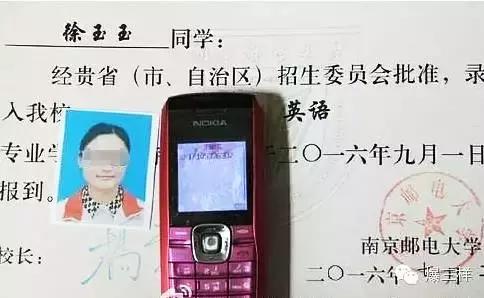 徐玉玉 同学：
经贵省（市、自治区）招生委员会批准，录
入我校 英语
专业学 二〇一六年九月一日
报到。
NOKIA
校长：
南京邮电大学
二〇一六年七
爆三样